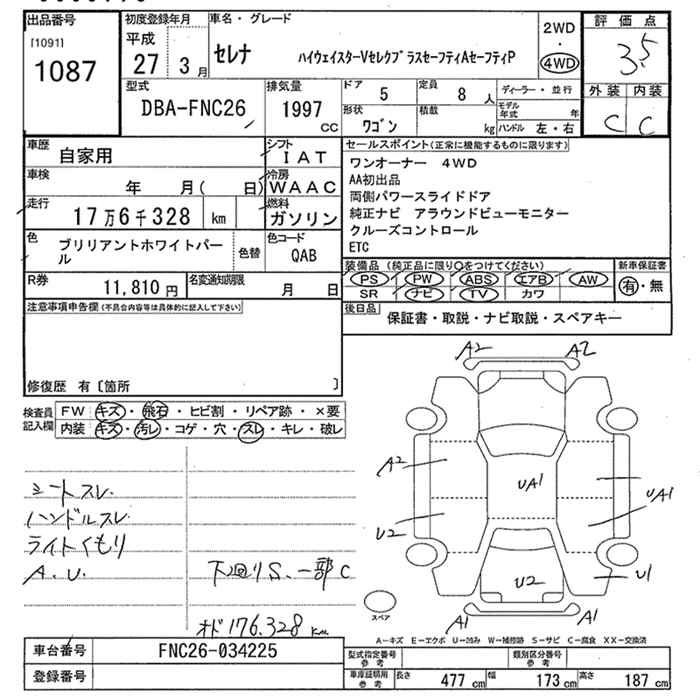 出品番号
[1091]
1087
初度登録年月
平成
27 3月
車名・グレード
セレナ ハイウェイスターVセレクプラスセーフティAセーフティP
2WD
・
4WD
評価点
3.5
外装 内装
C C
型式
DBA-FNC26
排気量
1997
CC
ドア 5
定員 8 人
形状 ワゴン
積載 kg
ディーラー・並行
モデル年式 年
ハンドル 左・右
車歴
自家用
シフト
IAT
車検
年 月( 日)
冷房
WAAC
走行
17万6千328 km
燃料
ガソリン
色
ブリリアントホワイトパール
色替
色コード
QAB
R券
11,810円
名変通知期限
月 日
セールスポイント(正常に機能するものに限ります)
ワンオーナー 4WD
AA初出品
両側パワースライドドア
純正ナビ アラウンドビューモニター
クルーズコントロール
ETC
装備品(純正品に限り○をつけてください)
PS PW ABS エアB AW
SR ナビ TV カワ
新車保証書
有・無
後日品
保証書・取説・ナビ取説・スペアキー
注意事項申告欄(不具合内容等は具体的に記入して下さい)
修復歴 有〔箇所 〕
検査員記入欄
FW キズ・飛石・ヒビ割・リペア跡・×要
内装 キズ・汚レ・コゲ・穴・スレ・キレ・破レ
シートスレ
ハンドルスレ
ライトくもり
A.U.
下廻りS、一部C
オド176.328 km
A2 A2
A2
UA1
UA1
U2
U2
U1
A1 A1
スペア
A-キズ E-エクボ U-凹み W-補修跡 S-サビ C-腐食 XX-交換済
車台番号
FNC26-034225
登録番号
型式指定番号
参考
類別区分番号
参考
車庫証明用
参考
長さ 477 cm
幅 173 cm
高さ 187 cm